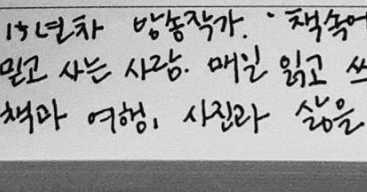 15년차 방송작가. 책속에
믿고 사는 사람. 매일 읽고 쓰
책과 여행, 사진과 삶을